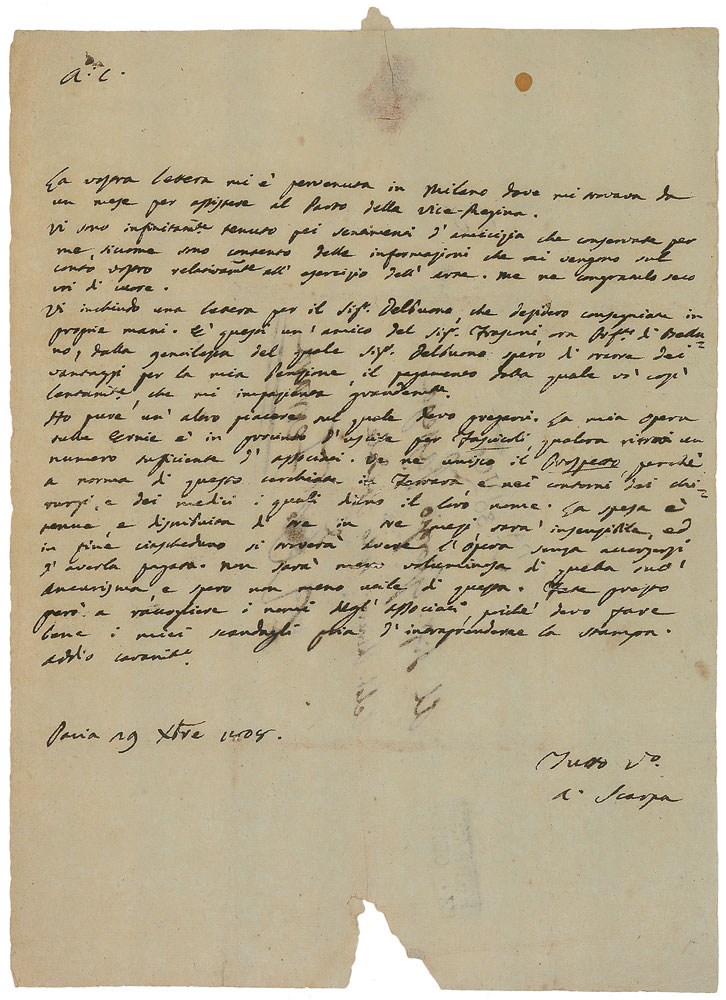 A. C.
La vostra lettera mi è pervenuta in Milano dove mi trovava da
un mese per assistere al Parto della Vice-Regina.
Vi sono infinitamte tenuto pei sentimenti d'amicizia che conservate per
me, siccome sono contento delle informazioni che mi vengono sul
conto vostro relativamte all' esercizio dell' arte. Me ne congratulo seco
voi di cuore.
Vi inchiudo una lettera per il Sigr. Delbuono, che desidero consegniate in
proprie mani. E' questi un' amico del Sigr. Frasini, ora di Bellu=
no, dalla gentilezza del quale Sigr. Delbuono spero di trarre dei
vantaggi per la mia Pensione, il pagamento della quale và così
lentamte, che mi impazienta grandemte.
Ho pure un' altro piacere sul quale devo pregarvi. La mia opera
sulle Ernie è in procinto d'uscire per Fascicoli, qualora ritrovi un
numero sufficiente d' associati. Ve ne unisco il Prospetto, perchè
a norma di questo cerchiate in Ferrara e nei contorni dei chi=
rurgi, e dei medici i quali diano il loro nome. La spesa è
tenue e distribuita di tre in tre mesi sarà insensibile, ed
in fine ciascheduno si troverà avere l'Opera senza accorgersi
d' averla pagata. Non sarà meno voluminosa di quella sull'
Aneurisma, e spero non meno utile di questa. Fate presto
però a raccogliere i nomi degl' associati, poichè devo fare
bene i miei scandagli pria d' intraprenderne la stampa.
Addio caramte.
Pavia 29 Xbre 1808.
Tutto Vo.
A. Scarpa